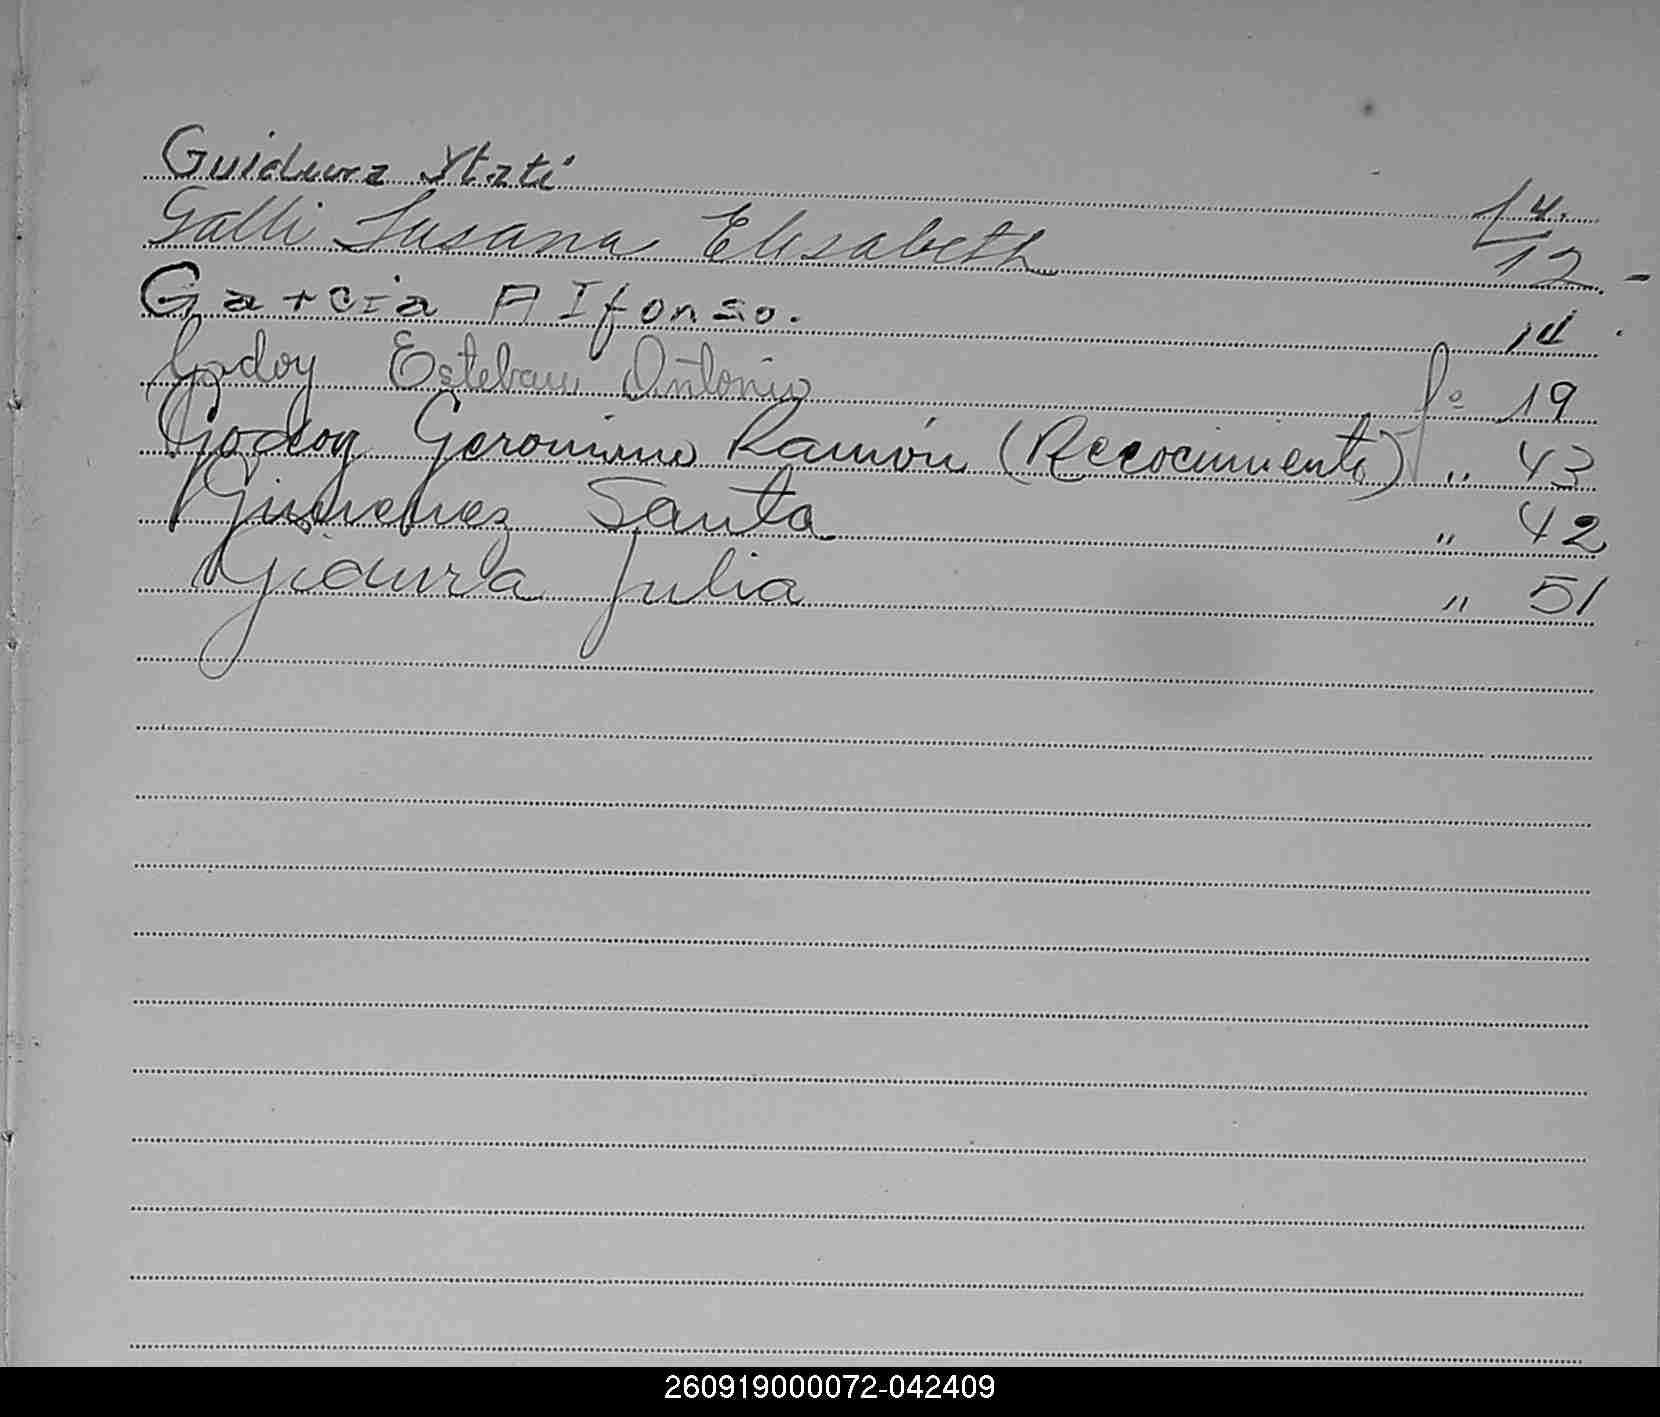 Guidura Ytati 14.
Galli Susana Elisabeth 12.-
Garcia Alfonso. 14.
Godoy Esteban Antonio fº 19
Godoy Geronimo Ramón (Recocimiento) " 43
Gimenez Santa " 42
Gidura Julia " 51
260919000072-042409